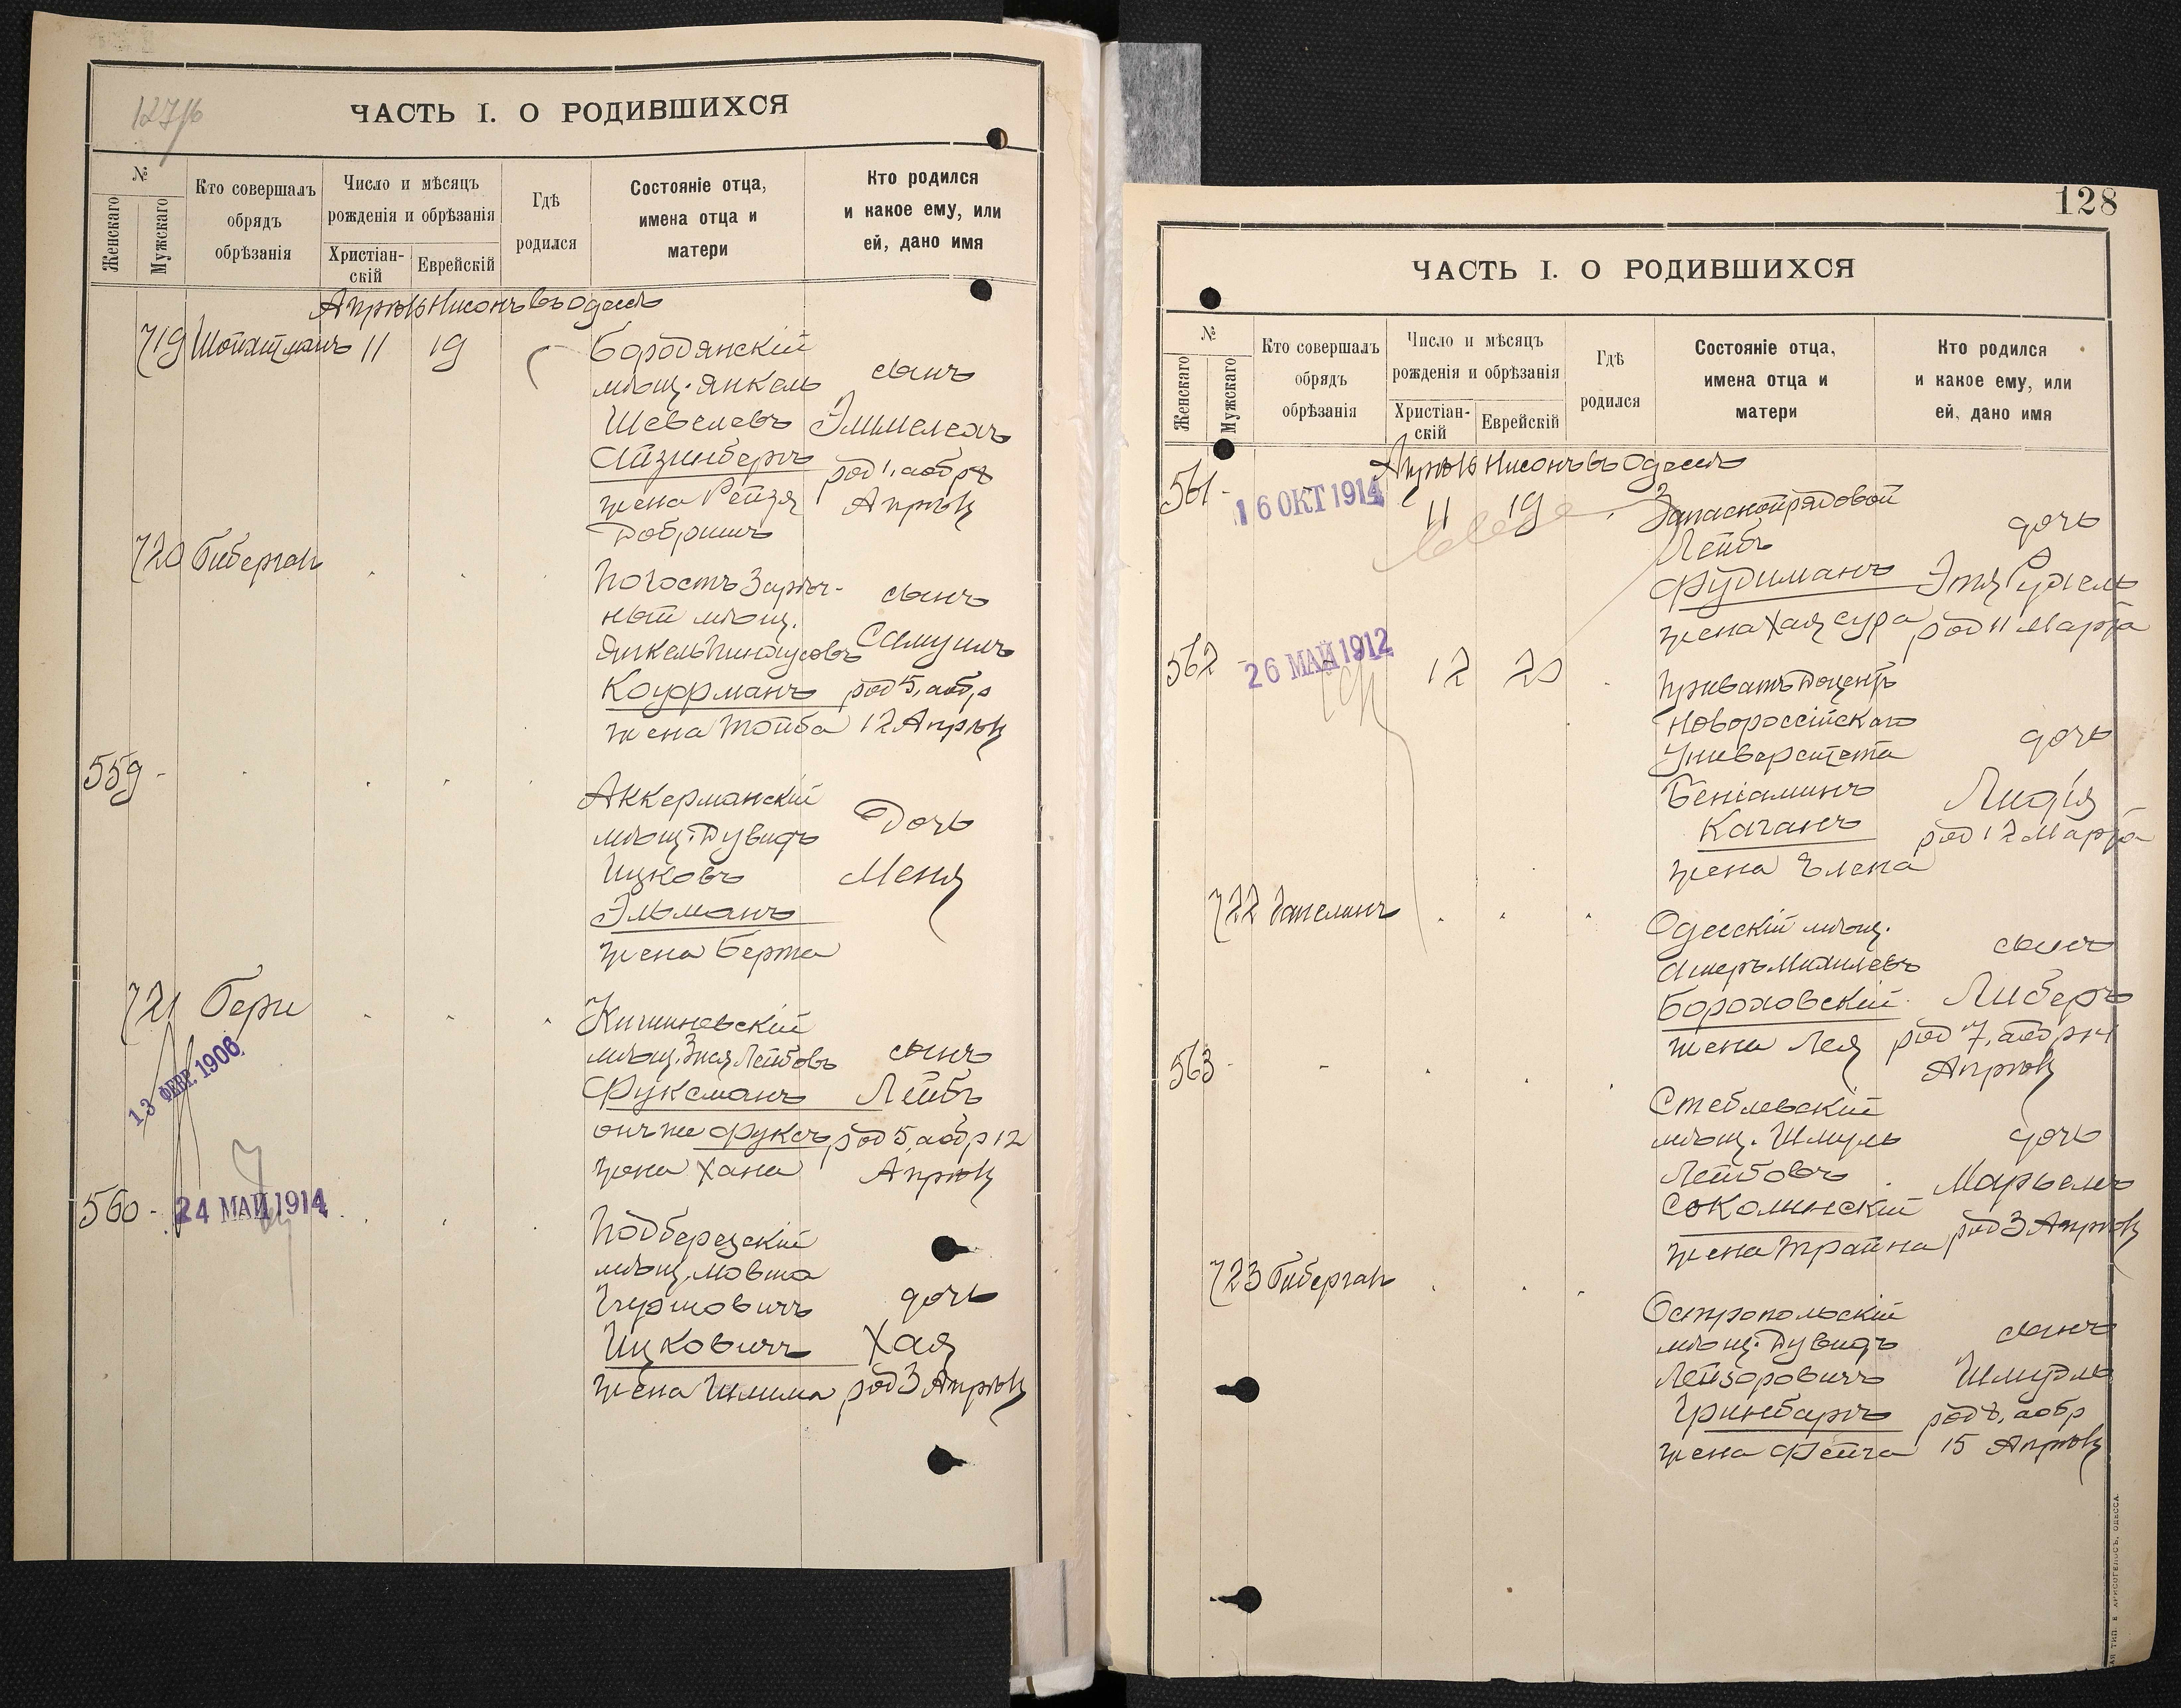 127/б
ЧАСТЬ I. О РОДИВШИХСЯ
№
Женскаго
Мужскаго
Кто совершалъ
обрядъ
обрѣзанія
Число и мѣсяцъ
рожденія и обрѣзанія
Христіан-
скій
Еврейскій
Гдѣ
родился
Состояніе отца,
имена отца и
матери
Кто родился
и какое ему, или
ей, дано имя
Апрѣль Нисонъ въ Одессѣ
719 Шойхтманъ 11 19
Бородянскій
мѣщ. Янкель
Шевелевъ
Айзинбергъ
жена Рейзя
Добришъ
сынъ
Элимелехъ
род 1, аобр 8
Апрѣля
720 Гиберган
Погостъ Зарѣч-
ный мѣщ.
Янкель Пинхусовъ
Кауфманъ
жена Тойба
сынъ
Самуилъ
род 5, аобр
12 Апрѣля
559 -
Аккерманскій
мѣщ. Дувидъ
Ицковъ
Эльманъ
жена Берта
Дочь
Меня
721 Гери
13 ФЕВР. 1906
Кишиневскій
мѣщ. Зися Лейбовъ
Фуксманъ
онъ же Фуксъ
жена Хана
сынъ
Лейбъ
род 5, аобр 12
Апрѣля
560 - 24 МАЙ 1914
Подберезскій
мѣщ. Мовша
Ицковичъ
жена Шлима
дочь
Хая
род 3 Апрѣля
128
ЧАСТЬ I. О РОДИВШИХСЯ
№
Женскаго
Мужскаго
Кто совершалъ
обрядъ
обрѣзанія
Число и мѣсяцъ
рожденія и обрѣзанія
Христіан-
скій
Еврейскій
Гдѣ
родился
Состояніе отца,
имена отца и
матери
Кто родился
и какое ему, или
ей, дано имя
Апрѣль Нисонъ въ Одессѣ
561 - 16 ОКТ 1914 11 19
Запасной рядовой
Лейбъ
Фудиманъ
жена Хая Сура
дочь
Этя Рухель
род 11 Марта
562 - 26 МАЙ 1912 12 20
Приватъ Доцентъ
Новороссійскаго
Университета
Веніаминъ
Каганъ
жена Елена
дочь
Лидія
род 12 Марта
722
Одесскій мѣщ.
Ашеръ Михилевъ
Бороховскій
жена Лея
сынъ
Либеръ
род 7, аобр 14
Апрѣля
563 -
Стеблевскій
мѣщ. Шмуль
Лейбовъ
Соколинскій
жена Трайна
дочь
Марьемъ
род 3 Апрѣля
723 Гиберган
Остропольскій
мѣщ. Дувидъ
Лейзоровичъ
Гринбаргъ
жена Фейга
сынъ
Шмудль
род 8, аобр
15 Апрѣля